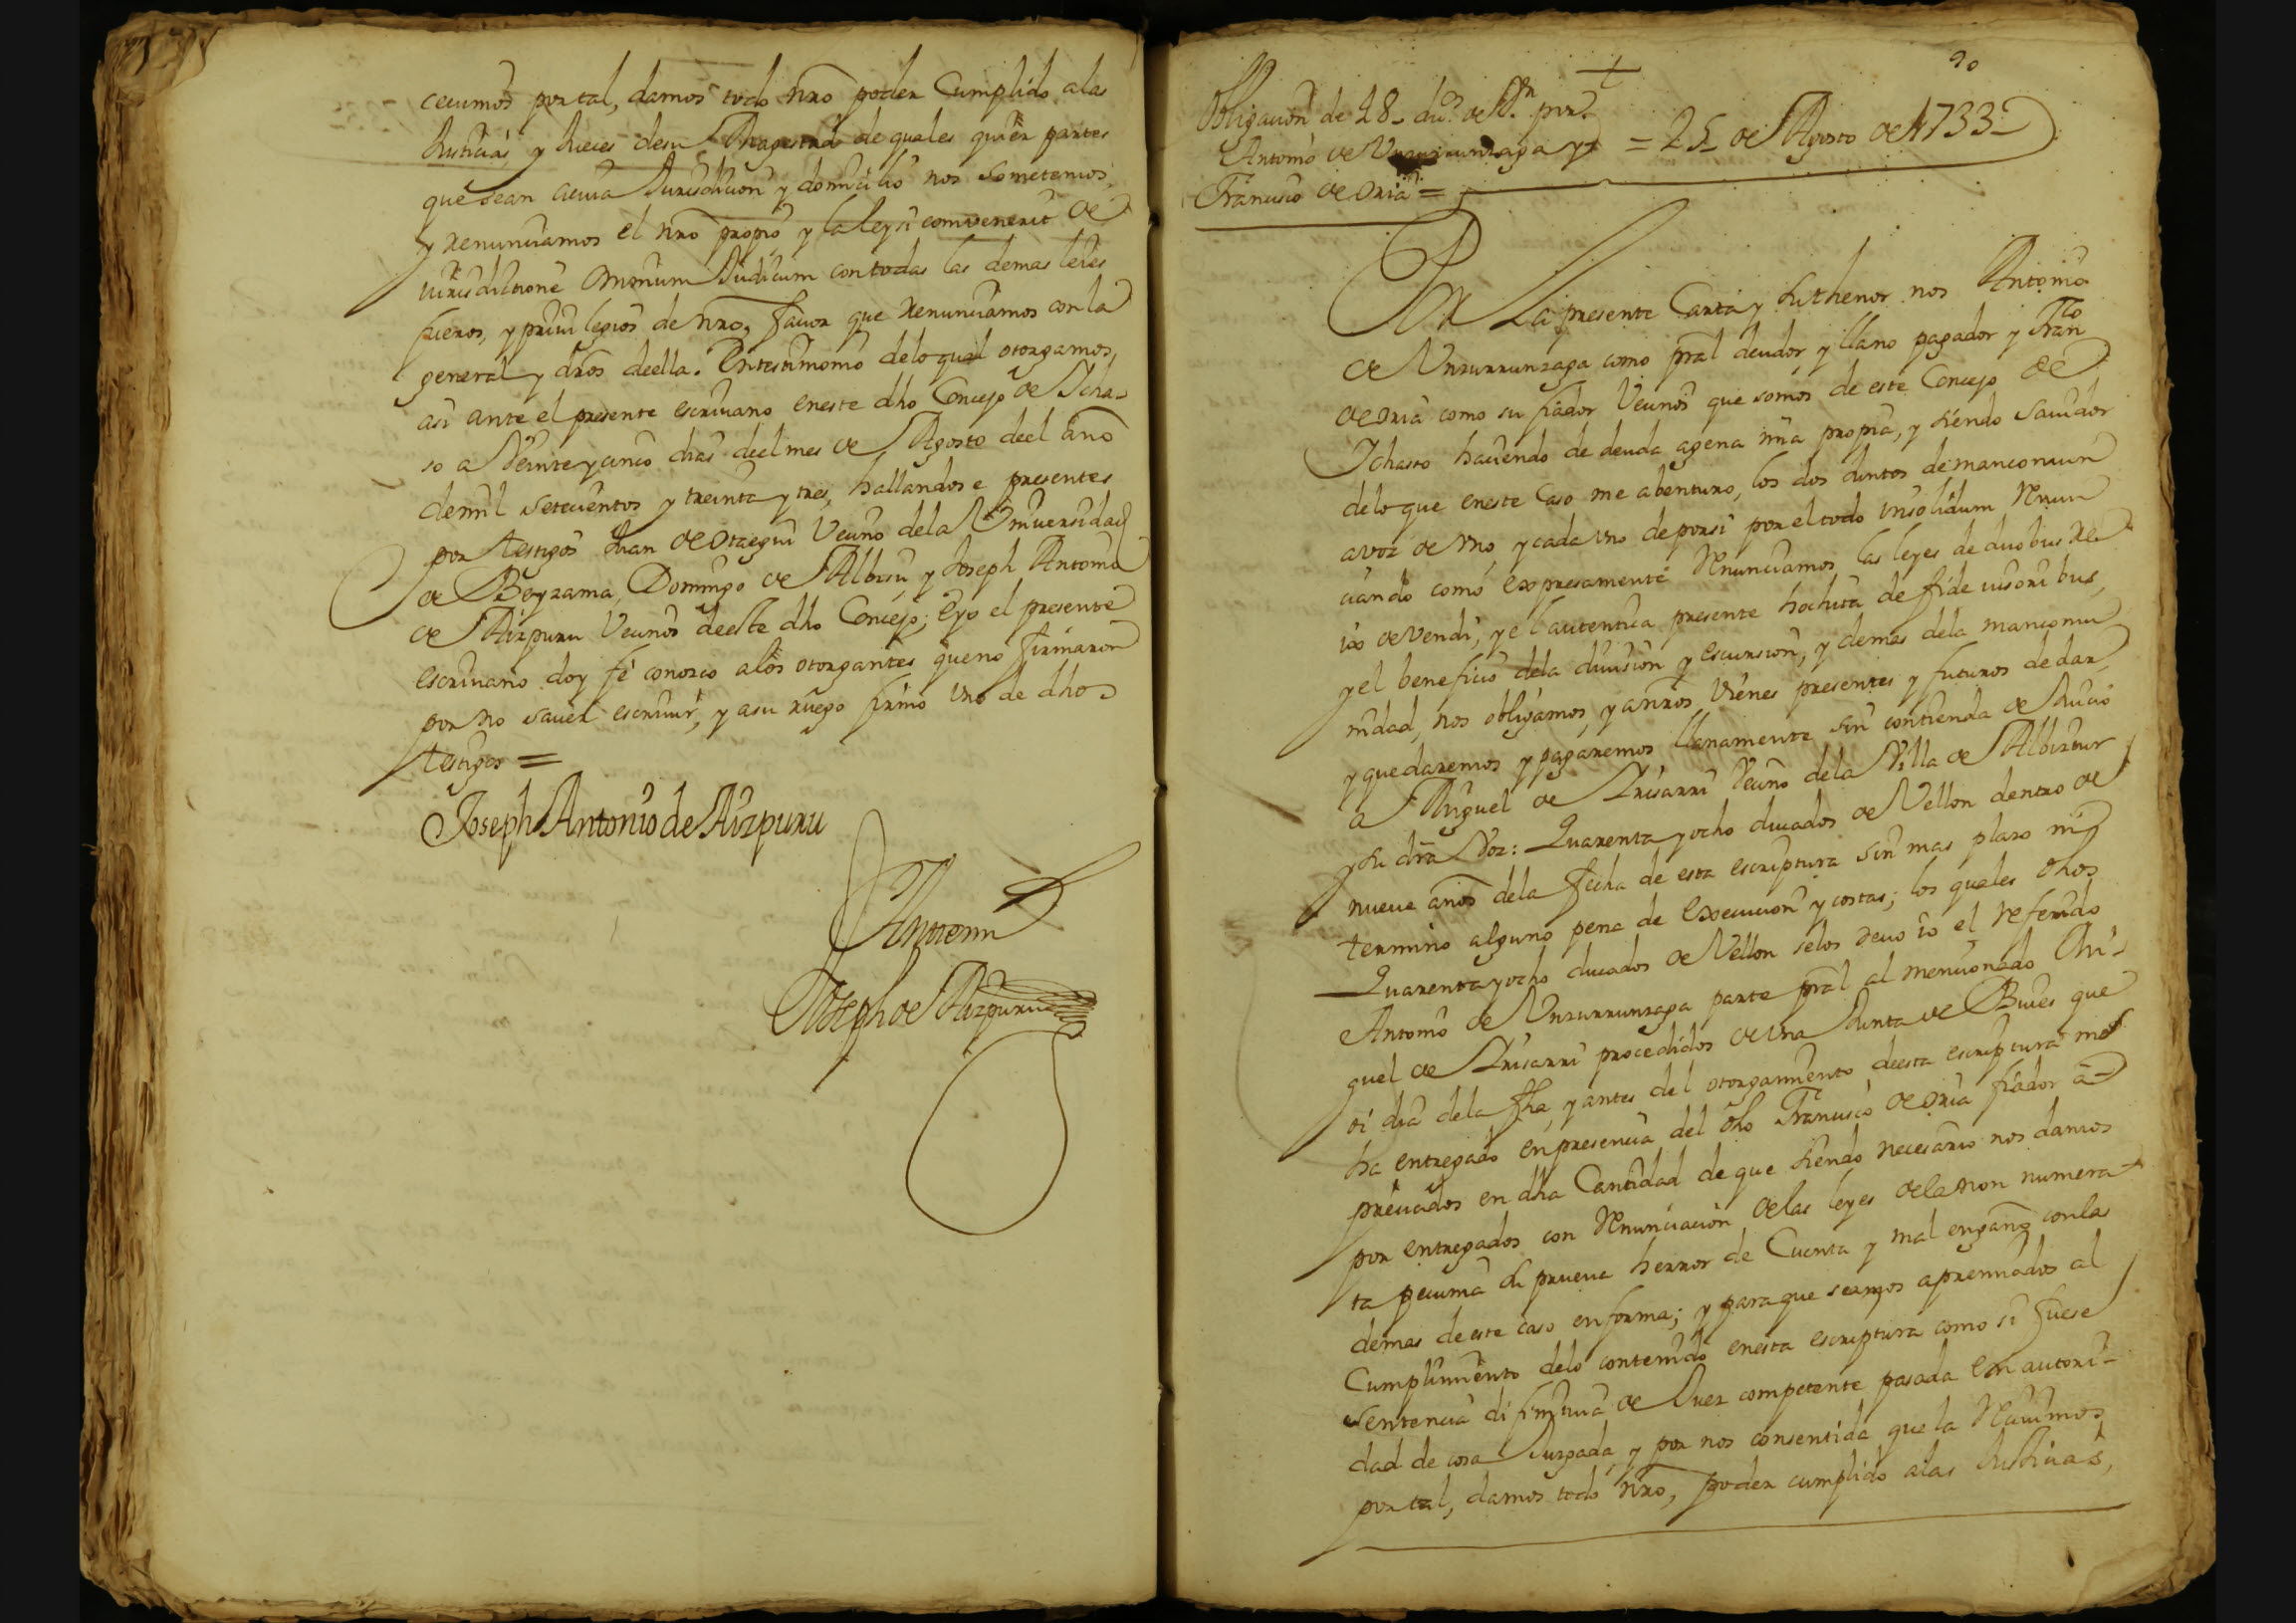 cecumos por tal, damos todo nro poder Cumplido alas
Justicias, y Jueces desu Magestad de quales quier partes
que sean acuia Jurisdicion y domicilio nos sometemos,
y renunciamos el nro propio y la ley si combenerit de
iurisdictione omnium Judicum contodas las demas leies
fueros, y priuilegios de nro, fauor que renunciamos con la
general y dros deella. Entestimonio deloqual otorgamos,
asi ante el presente escriuano eneste dho Concejo de Icha-
so a Veinte y cinco dias deel mes de Agosto deel año
demil setecientos y treinta y tres, hallandose presentes
por testigos Juan de Otaegui Vecino dela Universidad
de Beyzama, Domingo de Albisu, y Joseph Antonio
de Aizpuru Vecinos deeste dho Concejo; Eyo el presente
escriuano doy fé conozco alos otorgantes queno firmaron
por no sauer escriuir, y asu ruego firmo vno de dhos
testigos =
Joseph Antonio de Aizpuru
Antemi
Joseph de Aizpuru
90
Obligacion de 48 duc.s de Vn por
Antonio de Vnzurrunzaga y = 25 de Agosto de 1733
Francisco de Oria =
Por La presente Carta y su thenor nos Antonio
de Vnzurrunzaga como pral deudor y llano pagador y Franco
de Oria como su fiador Vecinos que somos de este Concejo de
Ichaso haciendo de deuda agena mia propia, y siendo Sauidor
delo que eneste Caso me abenturo, los dos Juntos demancomun
avoz de vno, y cada vno deporsi por el todo insolidum renun
ciando como expresamente renunciamos las leyes de duobus re
ix devendi, y el autentica presente hochita de fide iusoribus,
y el beneficio dela diuision y escursion, y demas dela mancomu
nidad, nos obligamos, y anros Vienes presentes y futuros de dar
y que daremos y pagaremos llanamente sin contienda de Juicio
a Miguel de Irisarri Vecino dela Villa de Albiztur
y su dra Voz: Quarenta y ocho ducados de Vellon dentro de
nueue años dela fecha de esta escriptura sin mas plazo ni
termino alguno pena de Execucion y costas; los quales dhos
Quarenta y ocho ducados de Vellon selos deuo io el referido
Antonio de Vnzurrunzaga parte pral al mencionado Mi-
guel de Irisarri procedidos de vna Junta de Bueies que
oi dia dela fha, y antes del otorgamiento deesta escriptura me
ha entregado enpresencia del dho Francisco de Oria fiador a
preciados en dha Cantidad de que siendo necesario nos damos
por entregados con renunciacion delas leyes dela non numera
ta pecunia su prueua herror de Cuenta y mal engaño conlas
demas deeste caso enforma; y paraque seamos apremiados al
Cumplimiento delo contenido enesta escriptura como si fuese
sentencia difinitiua de Juez competente pasada en autori-
dad de cosa Juzgada, y por nos consentida que la reciuimos
por tal, damos todo nro, poder cumplido alas Justicias,